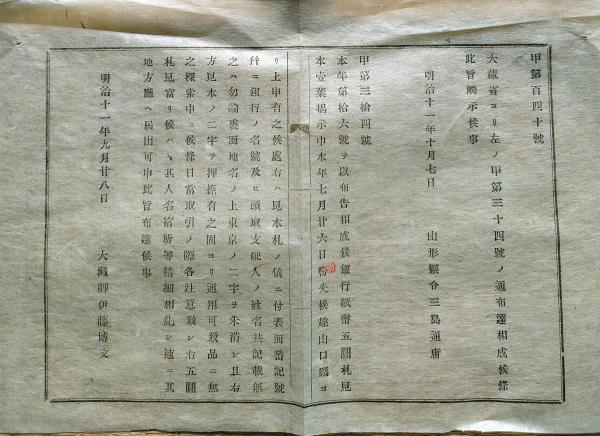 甲第百四十號
大藏省ヨリ左ノ甲第三十四號ノ通布達相成候條
此旨觸示候事
明治十一年十月七日
山形縣令三島通庸
甲第三拾四號
本年第拾六號ヲ以布告相成候銀行紙幣五圓札見
本壹葉揭示中本年七月廿六日紛失候趣山口縣ヨ
リ上申有之候處右ハ見本札ノ儀ニ付表面番記號
幷ニ銀行ノ名號及ヒ頭取支配人ノ姓名共記載無
之ハ勿論裏面地名ノ上東京ノ二字ヲ朱消シ且右
方見本ノ二字ヲ押捺有之固ヨリ通用可致品ニ無
之探索中ニ候條日當取引ノ際各注意致シ右五圓
札見當リ候ハヽ其人名宿所等精細相糺シ速ニ其
地方廳ヘ屆出可申此旨布達候事
明治十一年九月廿八日
大藏卿伊藤博文